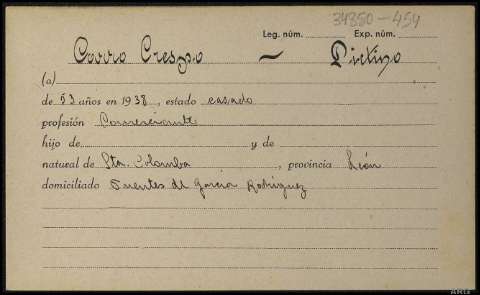 34350-454
Leg. núm. Exp. núm.
Corro Crespo — Dictino
(a)
de 53 años en 1938, estado casado
profesión Comerciante
hijo de y de
natural de Sta. Colomba, provincia León
domiciliado Fuentes de García Rodríguez